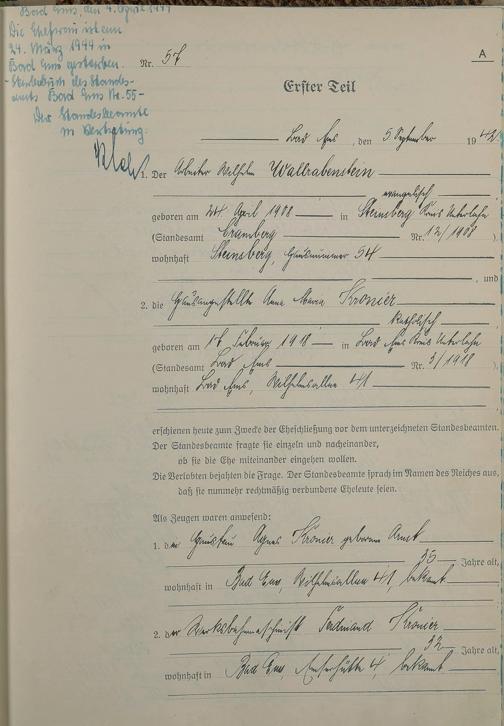 Bad Ems, den 4. April 1944
Die Ehefrau ist am
24. März 1944 in
Bad Ems gestorben.
-Sterbebuch des Standes-
amts Bad Ems Nr. 55-
Der Standesbeamte
in Vertretung:
A
Nr. 57
Erster Teil
Bad Ems, den 5. September 1942
1. Der Arbeiter Wilhelm Wallrabenstein
evangelisch
geboren am 24. April 1908 in Steinsberg Kreis Unterlahn
(Standesamt Cramberg Nr. 12/1908 )
wohnhaft Steinsberg, Hausnummer 54
, und
2. die Hausangestellte Anna Maria Kronier
katholisch
geboren am Februar 1918 in Bad Ems Kreis Unterlahn
(Standesamt Bad Ems Nr. 3/1918 )
wohnhaft Bad Ems, Wilhelmsallee 41
erschienen heute zum Zwecke der Eheschließung vor dem unterzeichneten Standesbeamten.
Der Standesbeamte fragte sie einzeln und nacheinander,
ob sie die Ehe miteinander eingehen wollen.
Die Verlobten bejahten die Frage. Der Standesbeamte sprach im Namen des Reiches aus,
daß sie nunmehr rechtmäßig verbundene Eheleute seien.
Als Zeugen waren anwesend:
1. die Hausfrau Agnes Kronier geborene
35 Jahre alt,
wohnhaft in Bad Ems, Wilhelmsallee 41, bekannt
2. der Ferdinand Kronier
32 Jahre alt,
wohnhaft in Bad Ems, Emserhütte 4, bekannt